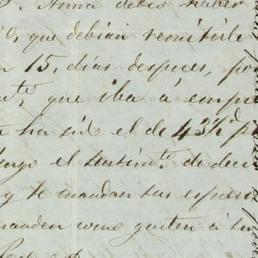 Anna debis haber
que debian remitirle
15, dias despues, por
que iba á empre
ha sido el de 43½ p
el sentim.to de dec
y te mandan sus espres
manden como gusten á su